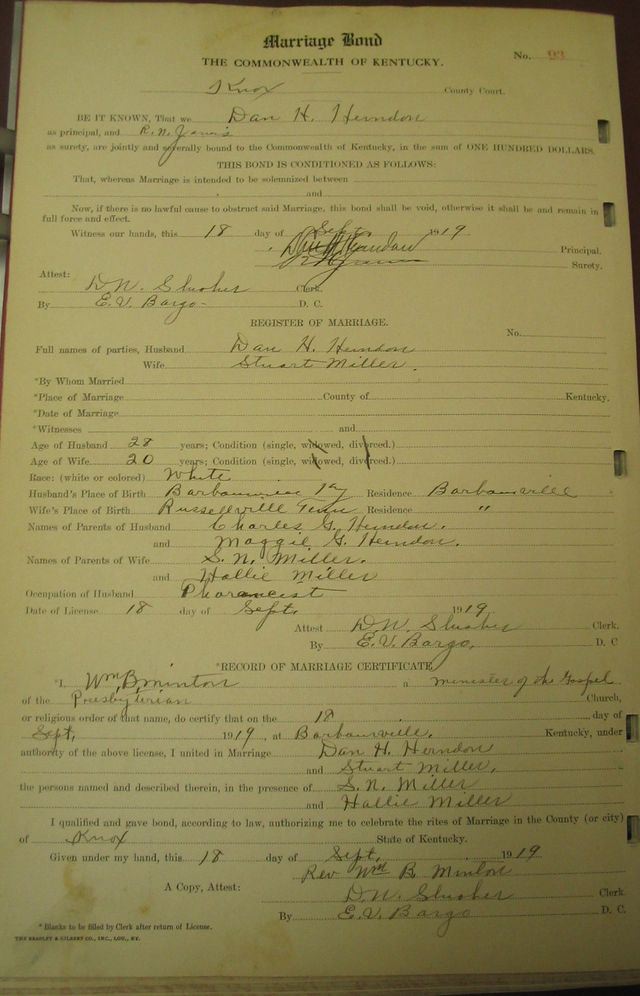 Marriage Bond
THE COMMONWEALTH OF KENTUCKY.
No. 93
Knox County Court.
BE IT KNOWN, That we Dan H. Herndon
as principal, and R. N. Jarvis
as surety, are jointly and severally bound to the Commonwealth of Kentucky, in the sum of ONE HUNDRED DOLLARS.
THIS BOND IS CONDITIONED AS FOLLOWS:
That, whereas Marriage is intended to be solemnized between
and
Now, if there is no lawful cause to obstruct said Marriage, this bond shall be void, otherwise it shall be and remain in
full force and effect.
Witness our hands, this 18 day of Sept 1919
Dan H Herndon Principal.
Surety.
Attest:
D. W. Slusher Clerk.
By E. V. Bargo D. C.
REGISTER OF MARRIAGE.
No.
Full names of parties, Husband Dan H. Herndon
Wife Stuart Miller.
*By Whom Married
*Place of Marriage County of Kentucky.
*Date of Marriage
*Witnesses and
Age of Husband 28 years; Condition (single, widowed, divorced.)
Age of Wife 20 years; Condition (single, widowed, divorced.)
Race: (white or colored) White
Husband's Place of Birth Barbourville Ky Residence Barbourville
Wife's Place of Birth Russellville Tenn Residence "
Names of Parents of Husband Charles G. Herndon.
and Maggie G. Herndon.
Names of Parents of Wife S. N. Miller.
and Hallie Miller
Occupation of Husband Pharancist
Date of License 18 day of Sept. 1919
Attest D. W. Slusher Clerk.
By E. V. Bargo, D. C
*RECORD OF MARRIAGE CERTIFICATE
*I, Wm, B, Minton a minester of the Gospel
of the Presbyterian Church,
or religious order of that name, do certify that on the 18 day of
Sept, 1919, at Barbourville. Kentucky, under
authority of the above license, I united in Marriage Dan H. Herndon
and Stuart Miller,
the persons named and described therein, in the presence of S. N. Miller
and Hallie Miller
I qualified and gave bond, according to law, authorizing me to celebrate the rites of Marriage in the County (or city)
of Knox State of Kentucky.
Given under my hand, this 18 day of Sept, 1919
Rev Wm B. Minton
A Copy, Attest: D. W. Slusher Clerk.
By E. V. Bargo D. C.
* Blanks to be filled by Clerk after return of License.
THE BRADLEY & GILBERT CO., INC., LOU., KY.